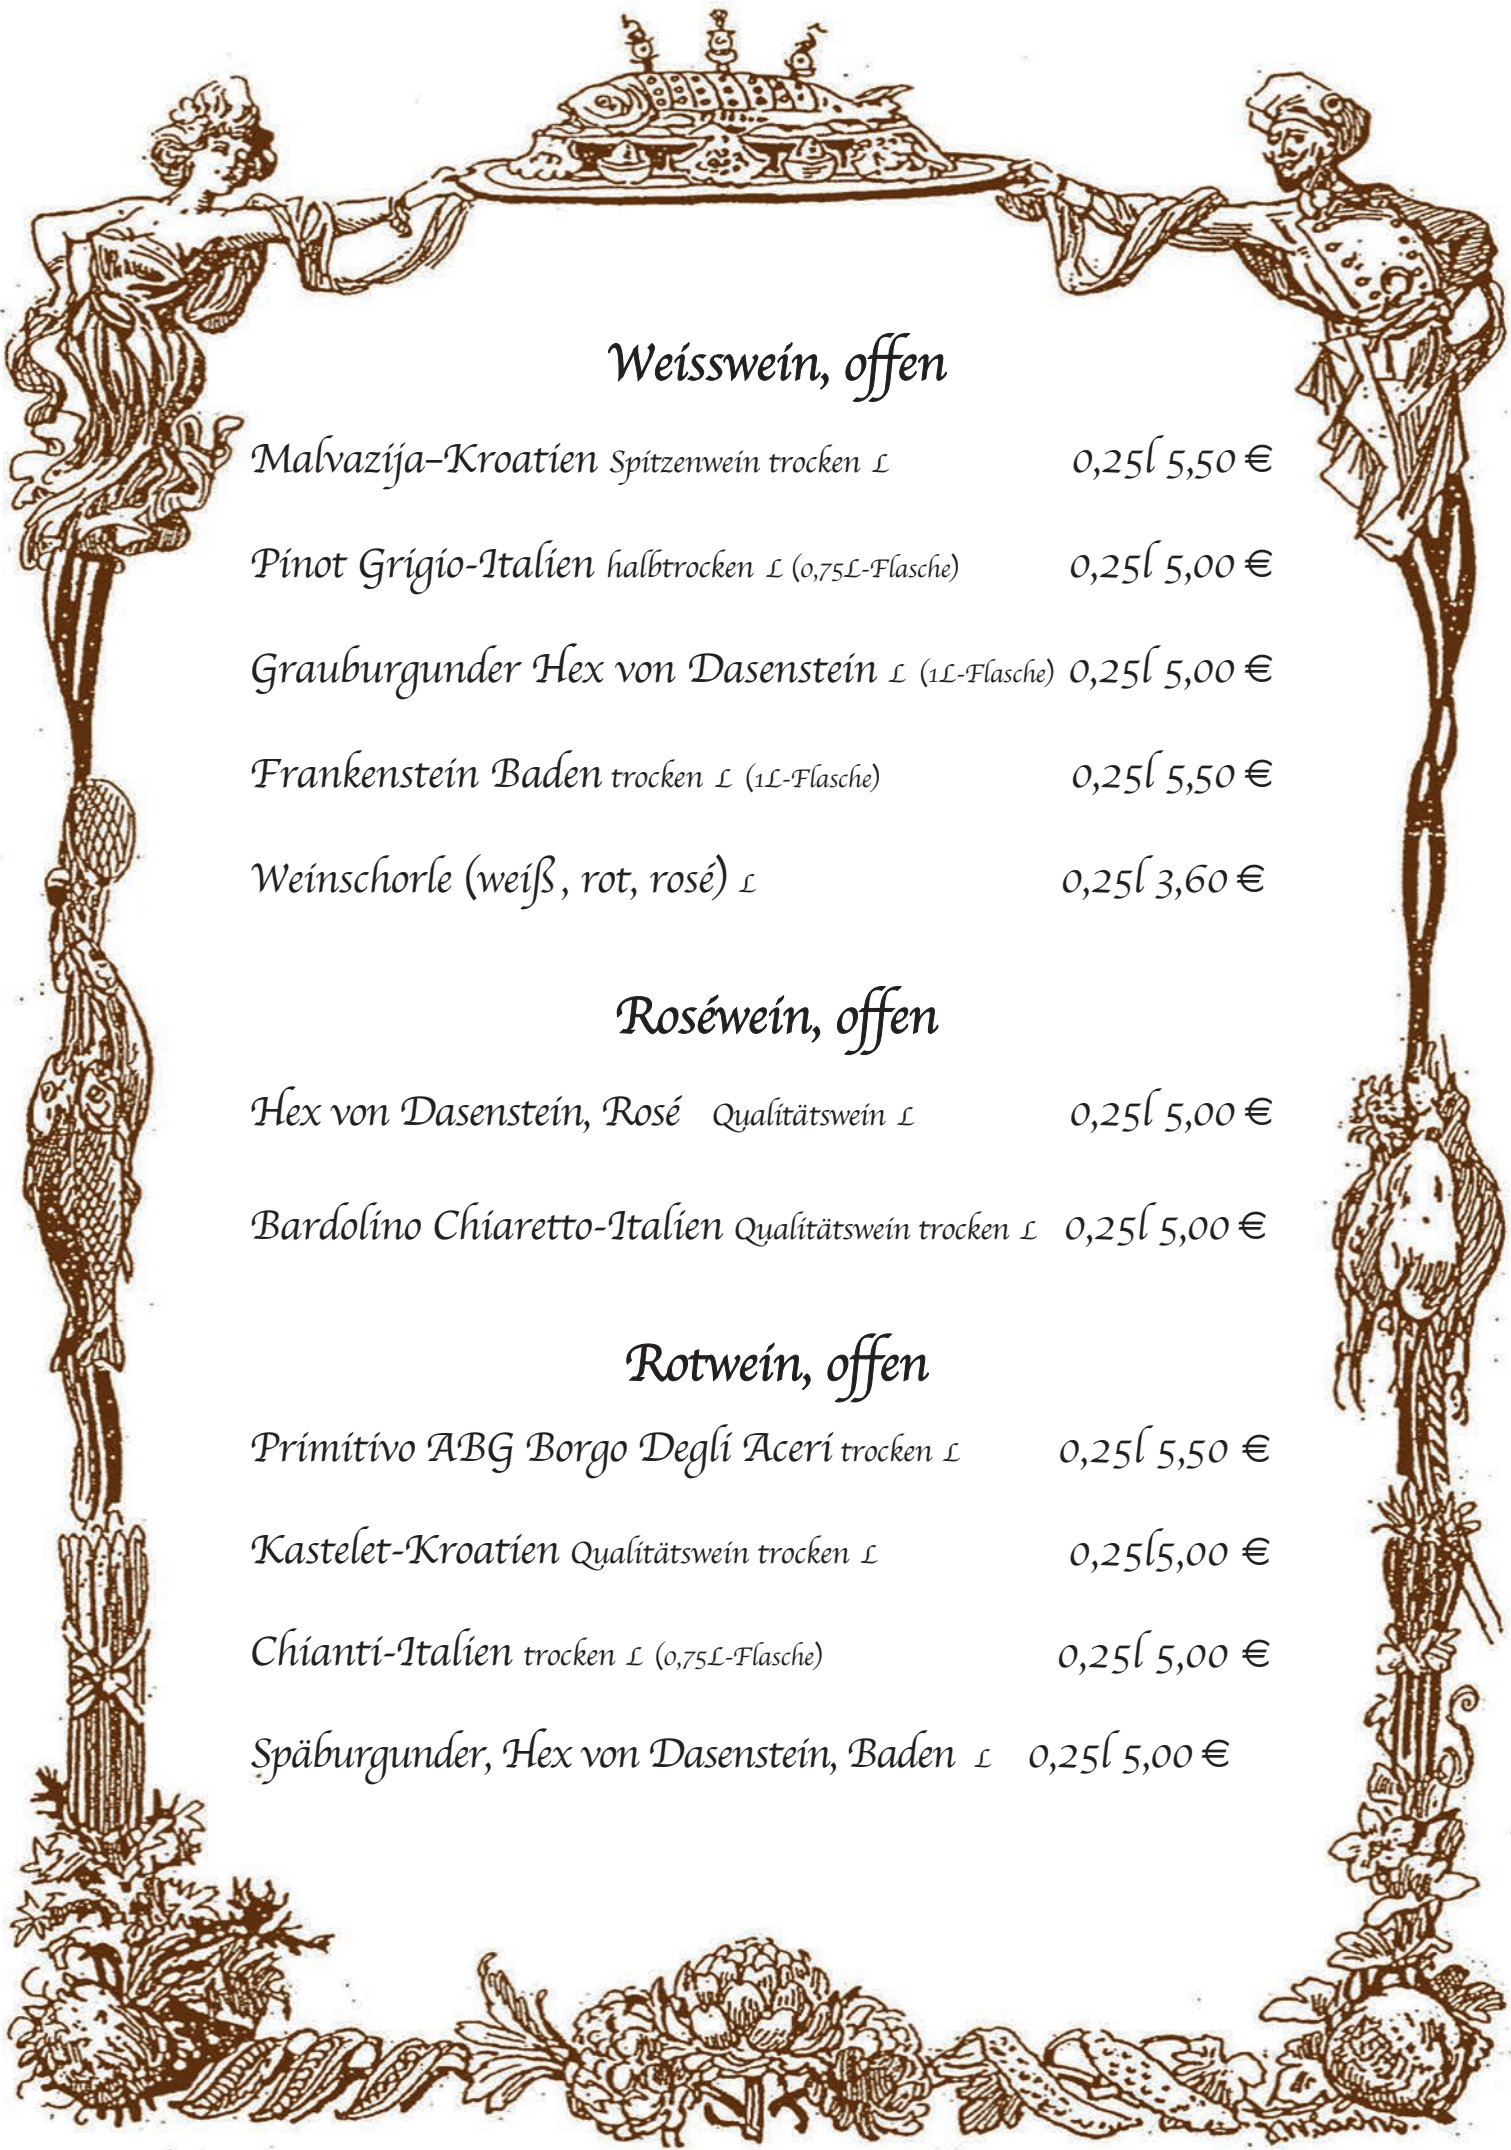 Weisswein, offen
Malvazija-Kroatien Spitzenwein trocken L 0,25l 5,50 €
Pinot Grigio-Italien halbtrocken L (0,75L-Flasche) 0,25l 5,00 €
Grauburgunder Hex von Dasenstein L (1L-Flasche) 0,25l 5,00 €
Frankenstein Baden trocken L (1L-Flasche) 0,25l 5,50 €
Weinschorle (weiß, rot, rosé) L 0,25l 3,60 €
Roséwein, offen
Hex von Dasenstein, Rosé Qualitätswein L 0,25l 5,00 €
Bardolino Chiaretto-Italien Qualitätswein trocken L 0,25l 5,00 €
Rotwein, offen
Primitivo ABG Borgo Degli Aceri trocken L 0,25l 5,50 €
Kastelet-Kroatien Qualitätswein trocken L 0,25l5,00 €
Chianti-Italien trocken L (0,75L-Flasche) 0,25l 5,00 €
Späburgunder, Hex von Dasenstein, Baden L 0,25l 5,00 €